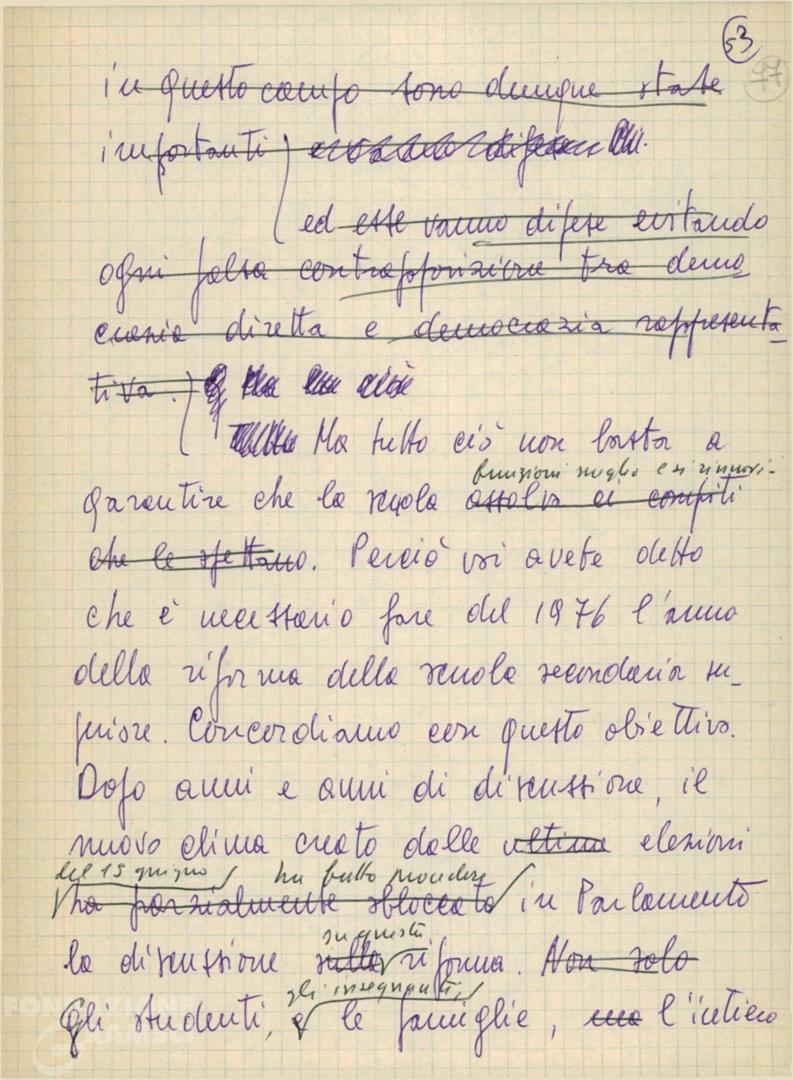 53
47
in questo campo sono dunque state
importanti
ed esse vanno difese evitando
ogni falsa contrapposizione tra demo
crazia diretta e democrazia rappresenta
tiva.
Ma tutto ciò non basta a
funzioni meglio e si rinnovi-
garantire che la scuola assolva ai compiti
che le spettano. Perciò voi avete detto
che è necessario fare del 1976 l'anno
della riforma della scuola secondaria su-
periore. Concordiamo con questo obiettivo.
Dopo anni e anni di discussione, il
nuovo clima creato dalle ultime elezioni
del 15 giugno ha fatto
ha parzialmente sbloccato in Parlamento
su questa
la discussione sulla riforma. Non solo
gli insegnanti,
Gli studenti, e le famiglie, ma l'intiero
FONDAZIONE
GRAMSCI